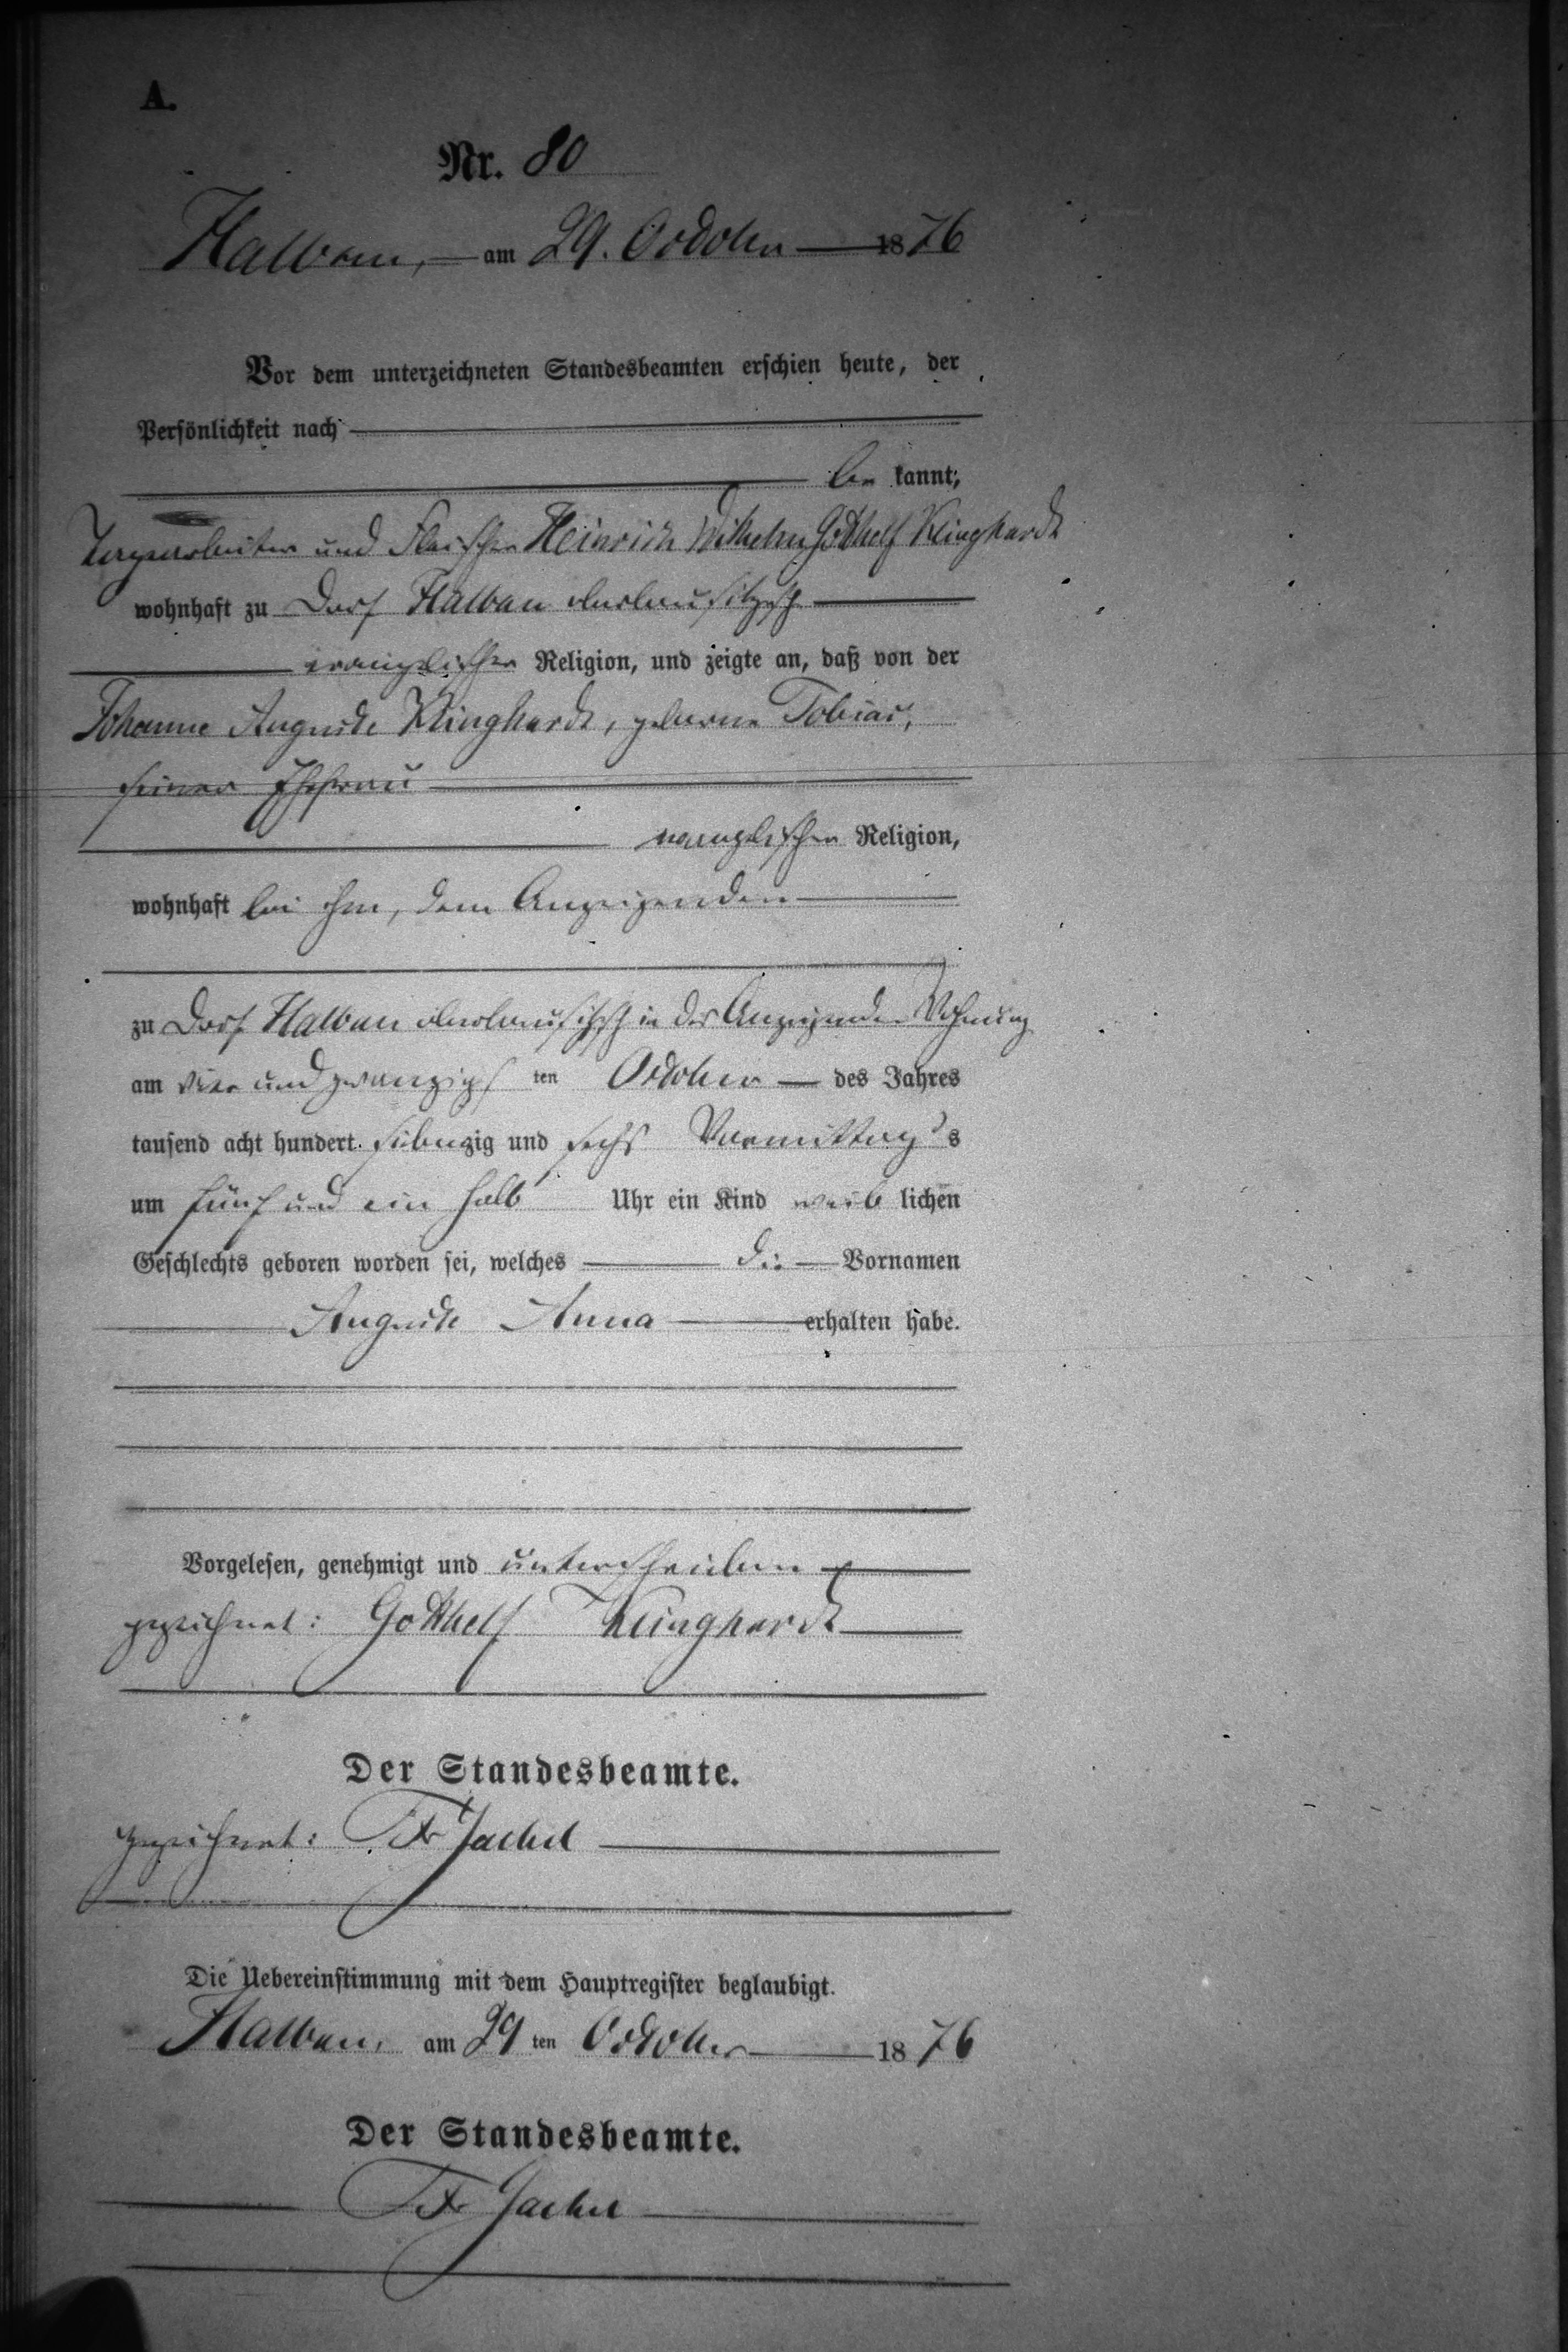 A.
Nr. 80
Halbau, am 29. October 1876
Vor dem unterzeichneten Standesbeamten erschien heute, der
Persönlichkeit nach
be kannt,
Tagearbeiter und Fleischer Heinrich Wilhelm Gotthelf Klinghardt
wohnhaft zu Dorf Halbau oberlausitzisch
evangelischer Religion, und zeigte an, daß von der
Johanne Auguste Klinghardt, geborne Tobias,
seiner Ehefrau
evangelischer Religion,
wohnhaft bei ihm, dem Anzeigenden
zu Dorf Halbau oberlausitzisch in des Anzeigenden Wohnung
am vier und zwanzigs ten October des Jahres
tausend acht hundert siebenzig und sechs Vormittags s
um fünf und ein halb Uhr ein Kind weib lichen
Geschlechts geboren worden sei, welches die Vornamen
Auguste Anna erhalten habe.
Vorgelesen, genehmigt und unterschrieben
gezeichnet: Gotthelf Klinghardt
Der Standesbeamte.
gezeichnet: Jackel
Die Uebereinstimmung mit dem Hauptregister beglaubigt.
Halbau, am 29 ten October 1876
Der Standesbeamte.
Jackel